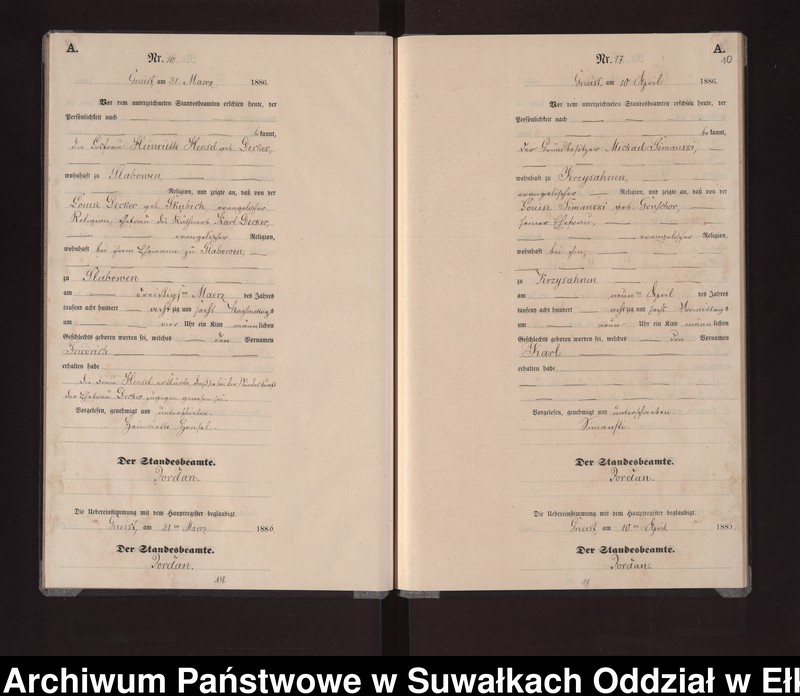 A.
Nr. 16
Gneist am 31 Maerz 1886.
Vor dem unterzeichneten Standesbeamten erschien heute, der
Persönlichkeit nach
bekannt,
die Losfrau Henriette Hensel geb. Decker,
wohnhaft zu Slabowen
Religion, und zeigte an, daß von der
Louise Decker geb. Skubich, evangelischer
Religion, Ehefrau des Karl Decker,
evangelischer Religion,
wohnhaft bei ihrem Ehemann zu Slabowen,
zu Slabowen
am dreißigsten Maerz des Jahres
tausend acht hundert achtzig und sechs Nachmittags
um vier Uhr ein Kind männlichen
Geschlechts geboren worden sei, welches den Vornamen
Friedrich
erhalten habe
Die Frau Hensel erklärte, daß sie bei der Niederkunft
der Ehefrau Decker zugegen gewesen sei.
Vorgelesen, genehmigt und unterschrieben
Henriette Hensel.
Der Standesbeamte.
Jordan.
Die Uebereinstimmung mit dem Hauptregister beglaubigt.
Gneist, am 31ten Maerz 1886
Der Standesbeamte.
Jordan.
A.
10
Nr. 17
Gneist am 10 April 1886.
Vor dem unterzeichneten Standesbeamten erschien heute, der
Persönlichkeit nach
bekannt,
der Grundbesitzer Michael Simanski,
wohnhaft zu Krzysahnen,
evangelischer Religion, und zeigte an, daß von der
Louise Simanski geb.
seiner Ehefrau,
evangelischer Religion,
wohnhaft bei ihm,
zu Krzysahnen
am neunten April des Jahres
tausend acht hundert achtzig und sechs Vormittags
um neun Uhr ein Kind männlichen
Geschlechts geboren worden sei, welches den Vornamen
Karl
erhalten habe
Vorgelesen, genehmigt und unterschrieben
Simanski.
Der Standesbeamte.
Jordan.
Die Uebereinstimmung mit dem Hauptregister beglaubigt.
Gneist, am 10ten April 188
Der Standesbeamte.
Jordan.
Archiwum Państwowe w Suwałkach Oddział w Eł